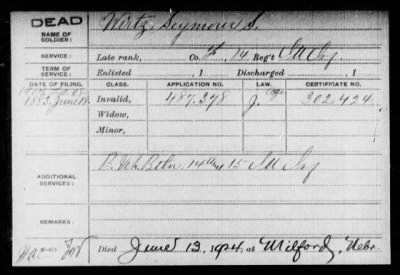 DEAD
NAME OF SOLDIER: Wirtz, Seymour S.
SERVICE: Late rank, Co. H, 14 Reg't Ill Inf
TERM OF SERVICE: Enlisted , 1 Discharged , 1
DATE OF FILING. CLASS. APPLICATION NO. LAW. CERTIFICATE NO.
1883 June Invalid, 487.378 302.424
Widow,
Minor,
B. Vet. Battn. 14 and 15 Ill Inf
ADDITIONAL SERVICES:
Died June 13, 1924, at Milford, Nebr.